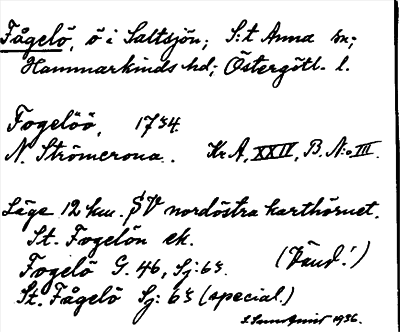 Fågelö, ö i Saltsjön; S:t Anna sn;
Hammarkinds hd; Östergötl. l.
Fogelöö, 1734.
N. Strömcrona. Kr A, XXIV, B. N:o III.
Läge 12 km. SV nordöstra karthörnet.
St. Fogelön ek.
Fogelö G. 46, Sj: 63. (Vänd!)
St. Fågelö Sj: 63 (special.)
1936.